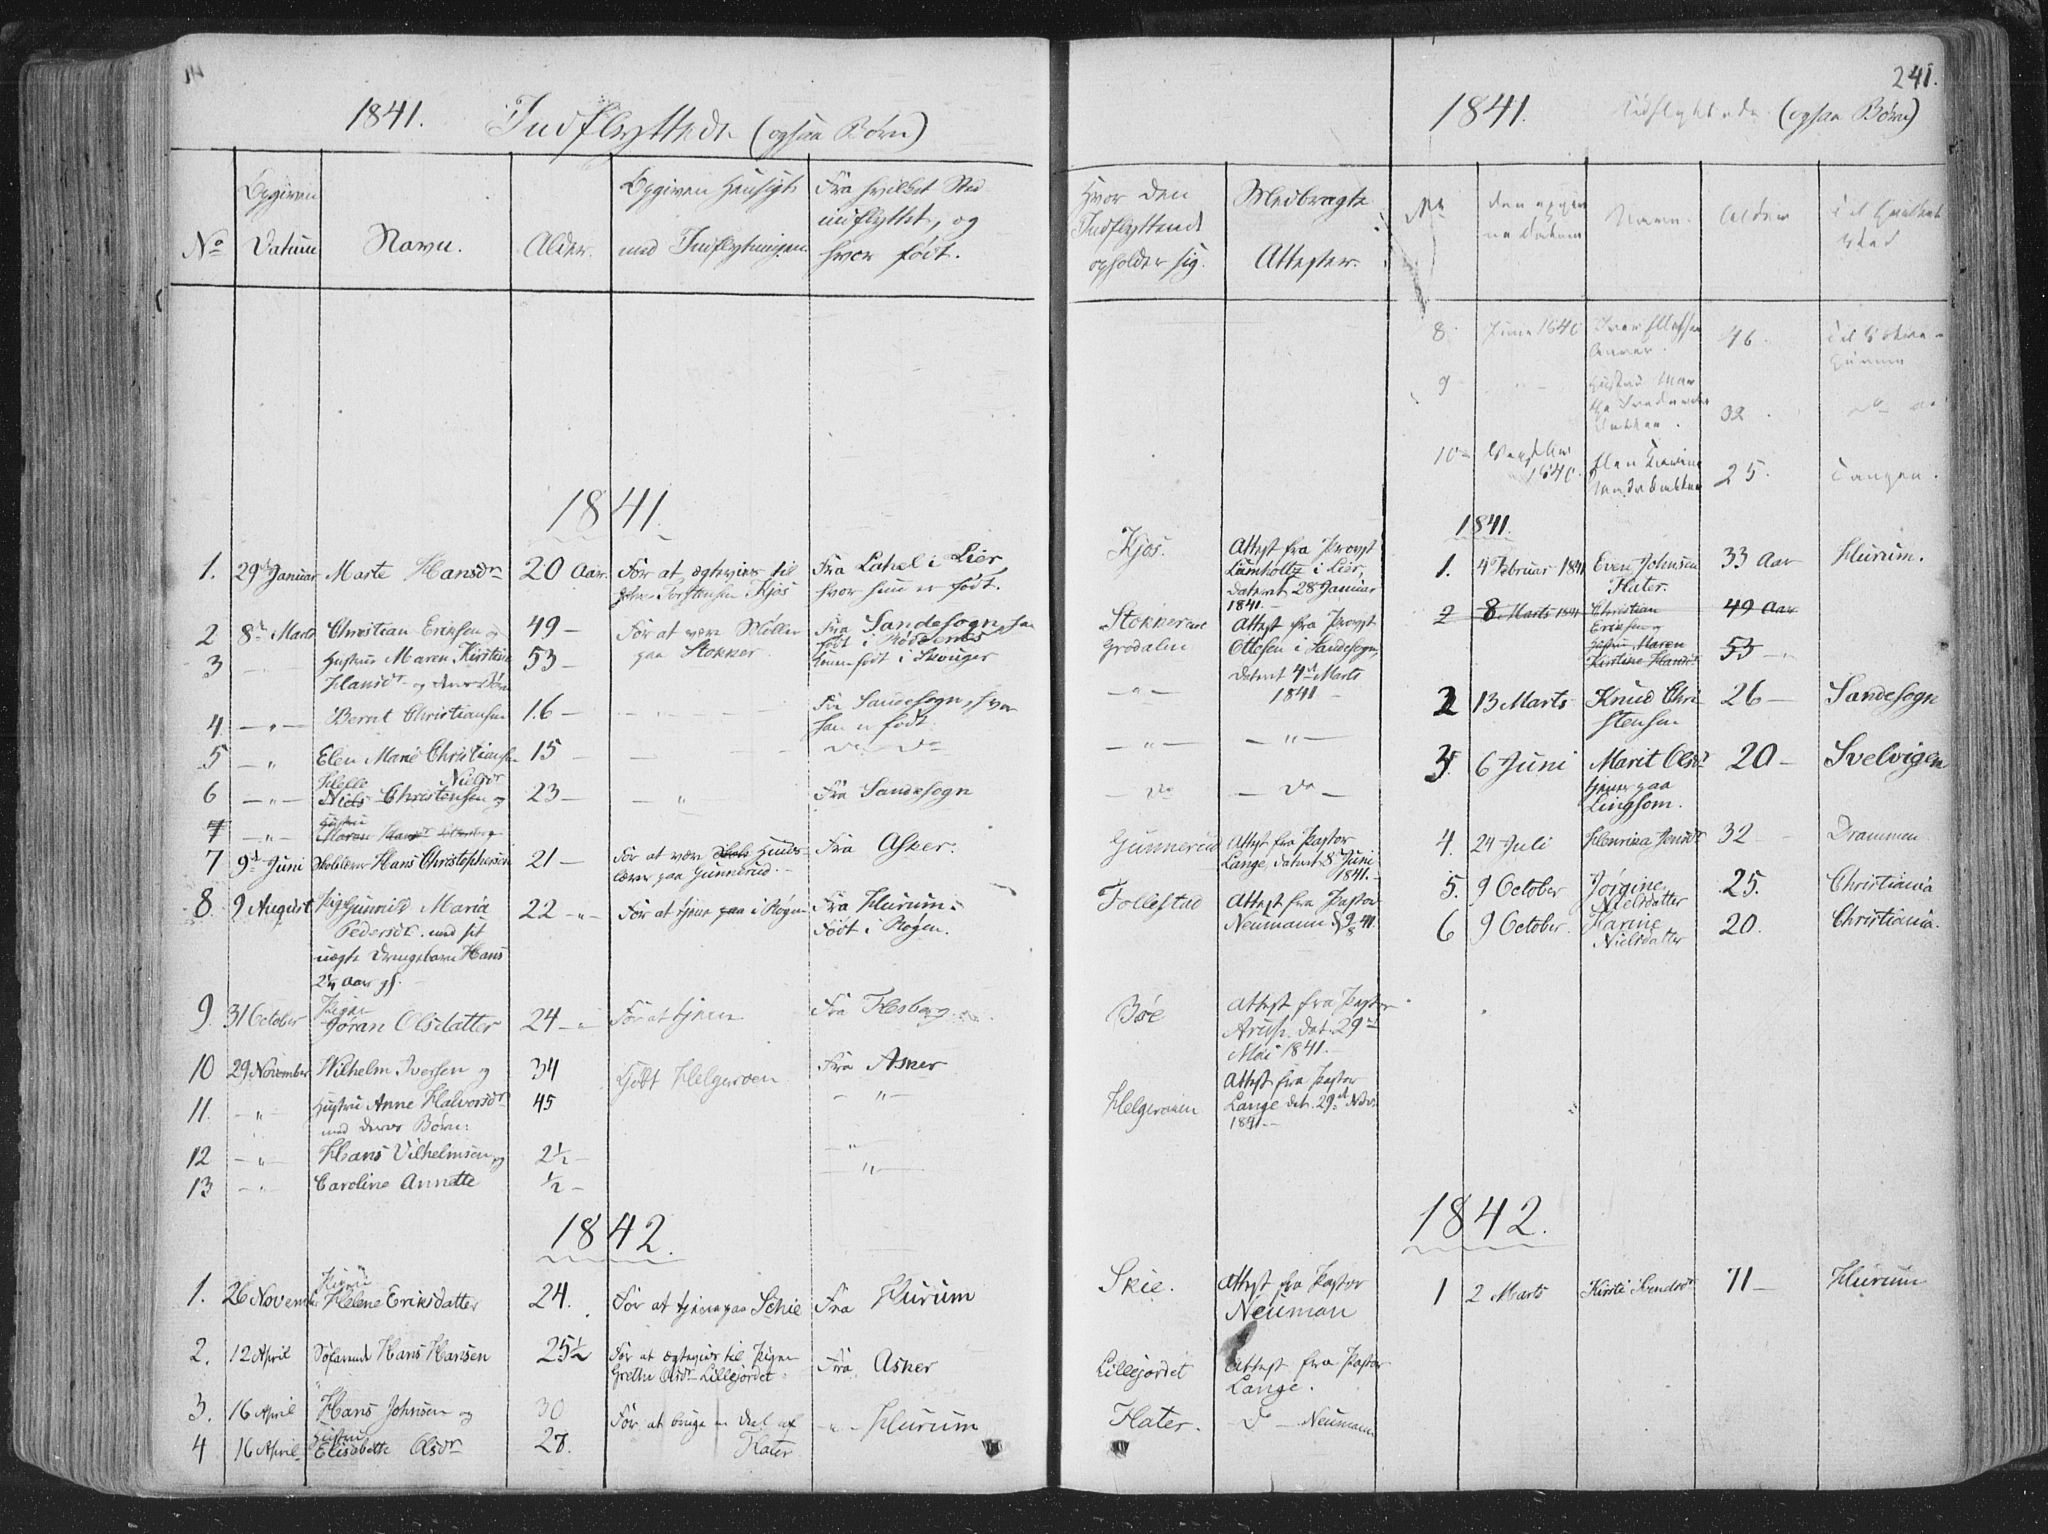 241.
1841. Indflyttede (ogsaa Børn)
No
Opgiven Datum
Navn.
Alder.
Opgiven Hensigt med Indflytningen
Fra hvilket Sted indflyttet, og hvor født.
Hvor den Indflyttende opholder sig.
Medbragte Attester.
1841
1. 29d Januar Marte Hansdr 20 Aar. For at ægtevies til Torstensen Kjos Fra Lahel i Lier, hvor hun er født. Kjos. Attest fra Provst Lumholtz i Lier, dateret 28 Januar 1841.
2 8d Marts Christian Eriksen og 49 - For at være Møller paa Stokker. Fra Sandesogn, han født i Stokkerne Attest fra Provst
3 Hustru Maren Kirstine Hansdr og deres Børn 53 - hun født i Skouger Grødalen Ottesen i Sandesogn, dateret 4d Marts 1841
4 - " - Bernt Christiansen 16 - Fra Sandesogn, hvor han er født - " -
5 - " Elen Marie Christiansen 15 - do do - " - - " -
6 - " - Helle Nielsdr Niels Christensen og 23 - " Fra Sandesogn - do - do -
7 - " - Hustru Maren
7 9d Juni Skolelærer Hans Christophersen 21 - For at være Huuslærer paa Gunnerud. - Fra Asker. Gunnerud Attest fra Pastor Lange, dateret 8 Juni 1841. -
8. 9 August Pige Gunnild Maria Pedersdr. med sit uægte Drengebarn Hans 2¼ Aar gl. 22 - " - For at tjene paa i Røgen Fra Hurum. Født i Røgen. Follestad Attest fra Pastor Neumann 9/8 41.
9. 31 October Pigen Jøran Olsdatter 24 - " For at tjene Fra Hesberg Bøe Attest fra Pastor Arup. dat. 29de Mai 1841. -
10 29 November Wilhelm Iversen og 34 Kjøbt Helgeroen Fra Asker Attest fra Pastor
11. - " Hustru Anne Halvorsdr med deres Børn: 45 - " - Helgeroen Lange dat. 29d Nov. 1841 -
12 - " Hans Vilhelmsen og 2½ - "
13 - " Caroline Annette ½ - - " -
1842.
1. 26 Novemb Pigen Helene Eriksdatter 24. For at tjene paa Schie Fra Hurum Skie. Attest fra Pastor Neuman
2. 12 April Søfarende Hans Hansen 25½ For at ægtevies til Pigen Grethe Olsdr Lillejordet. Fra Asker Lillejordet Attest fra Pastor Lange.
3. 16 April Hans Johnsen og 30 For at bruge en Deel af Flater - " - Hurum Flater. D - Neumann
4 16 April Hustru Elisabetha Olsdr 28.
1841. Udflyttede (ogsaa Børn)
No
Den opgivne Datum
Navn.
Alder
Til hvilket Sted
8. Juni 1840 46. Til
9 Hustru 32.
10 - 1840. 25. Tangen.
1841.
1. 4 Februar 1841 Even Johnsen Flater. 33 Aar Hurum.
2 8 Marts 1841 Christian Eriksen og 49 Aar
Hustru Maren Kirstine Hansdr 53 - "
2 13 Marts Knud Christensen 26 - Sandesogn
3 6 Juni Marit Olsdr tjener paa Lingsom. 20 - Svelvigen
4. 24 Juli Henrica Jensdr 32 - Drammen
5. 9 October Jørgine Nielsdatter 25. Christiania
6 9 October. Karine Nielsdatter 20. Christiania.
1842.
1 2 Marts Kirsti Svendsdr 71 - Hurum